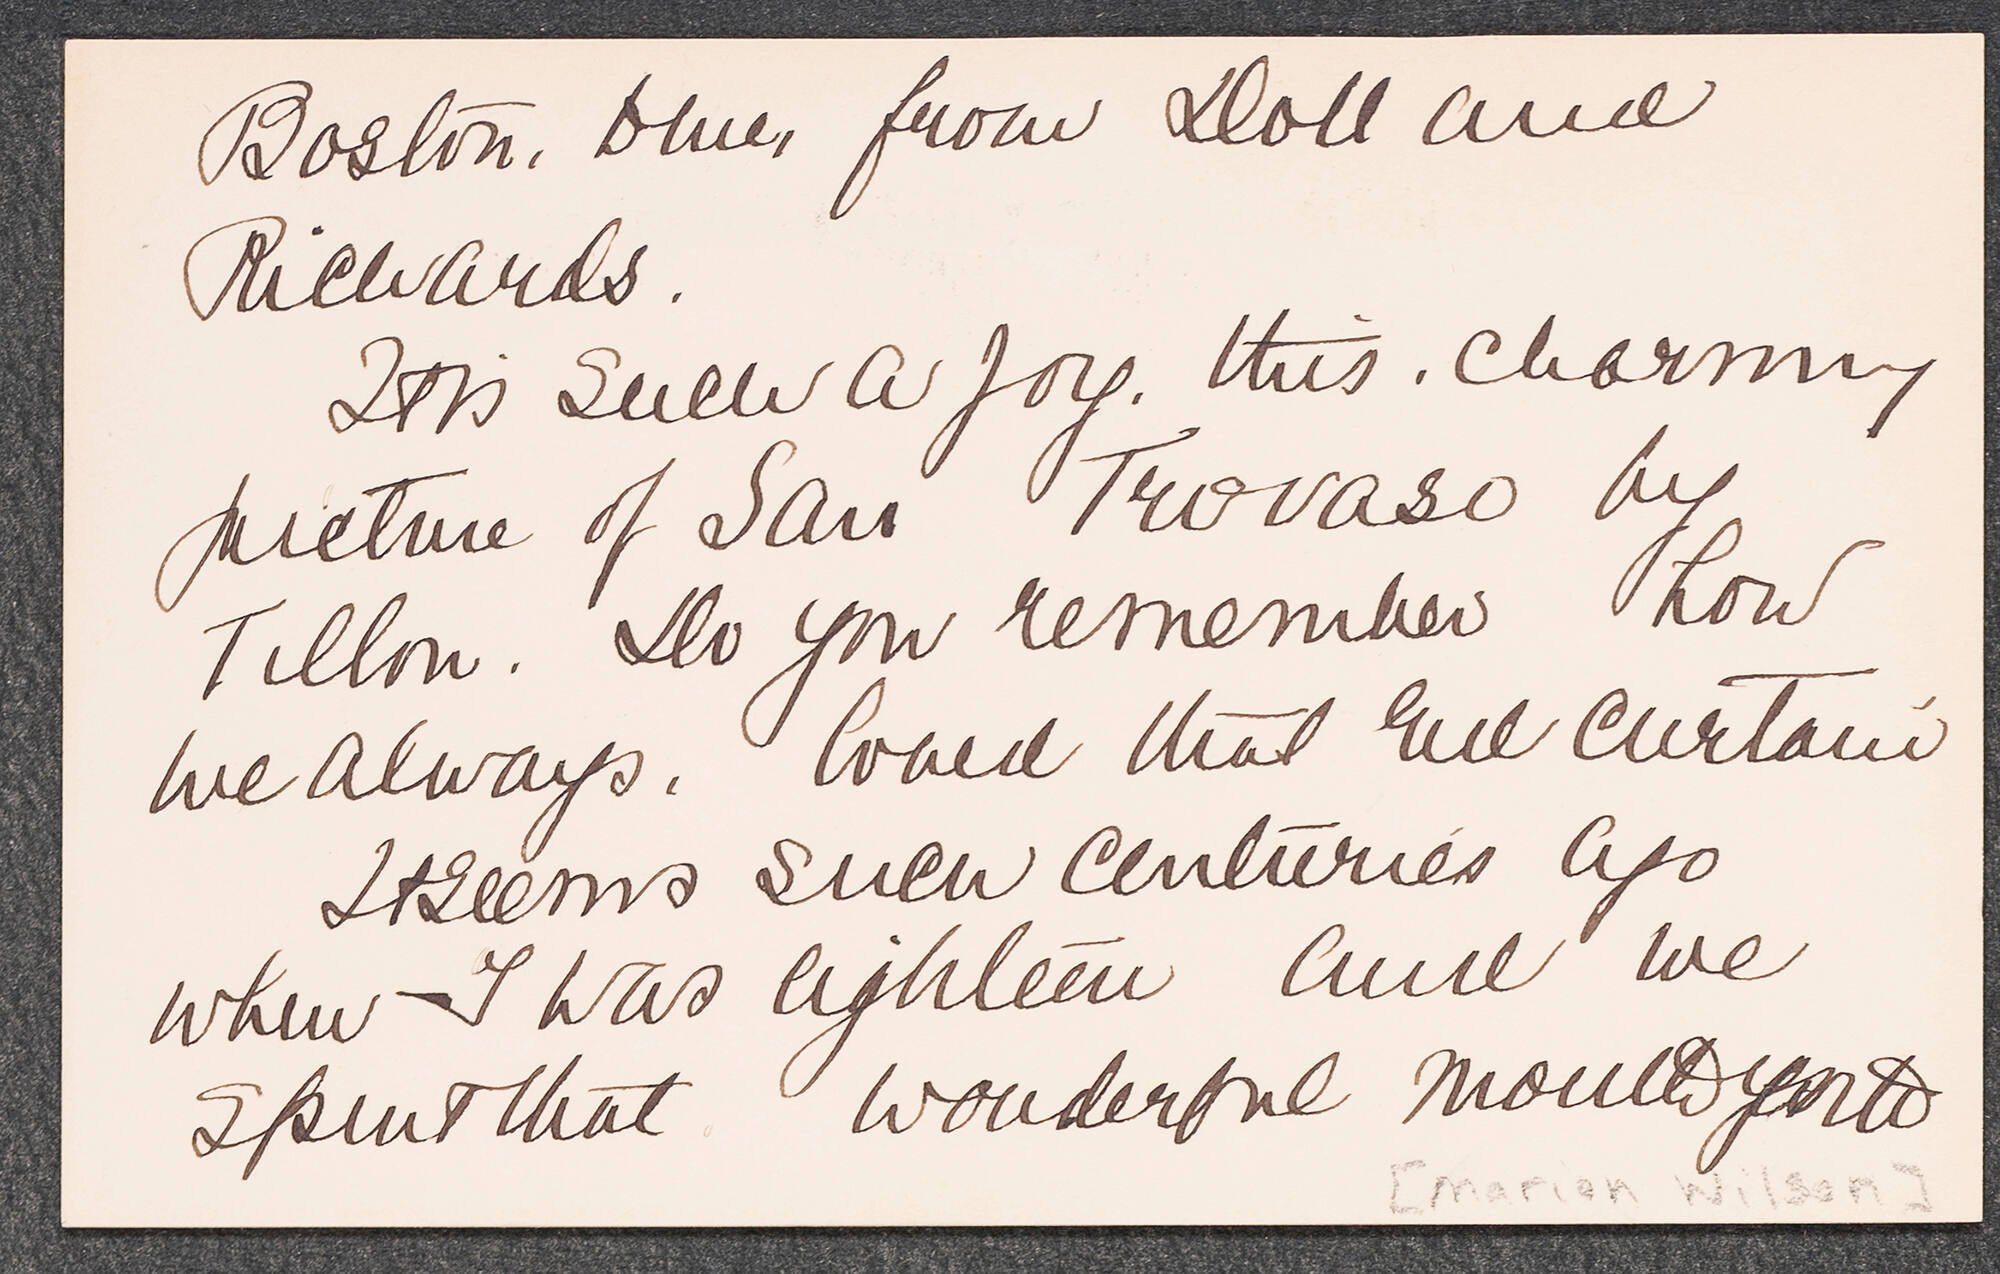 Boston. from Doll and
Richards.
It is such a joy. this. charming
picture of San Trovaso by
Do you remember how
we always. loved that red curtain
It seems such centuries ago
when I was eighteen and we
spent that wonderful month
[Marion Wilson]